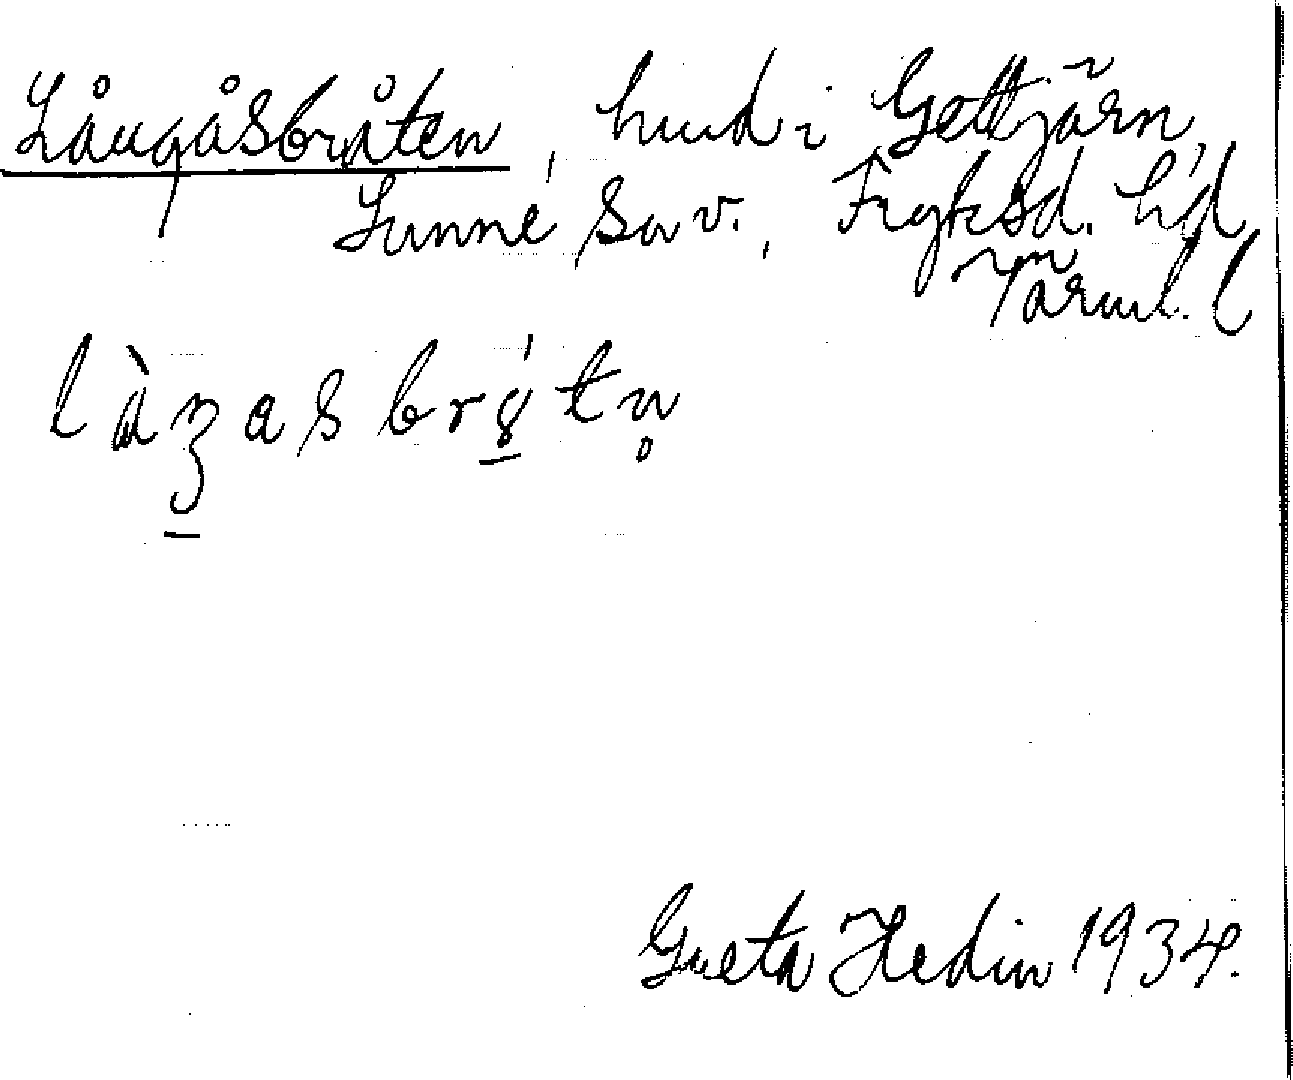 Långåsbråten, hmd i Gettjärn,
Sunne sn v., Fryksd. hd
Värml. l
làꜫasbrǻtn̥
Greta Hedin 1934.